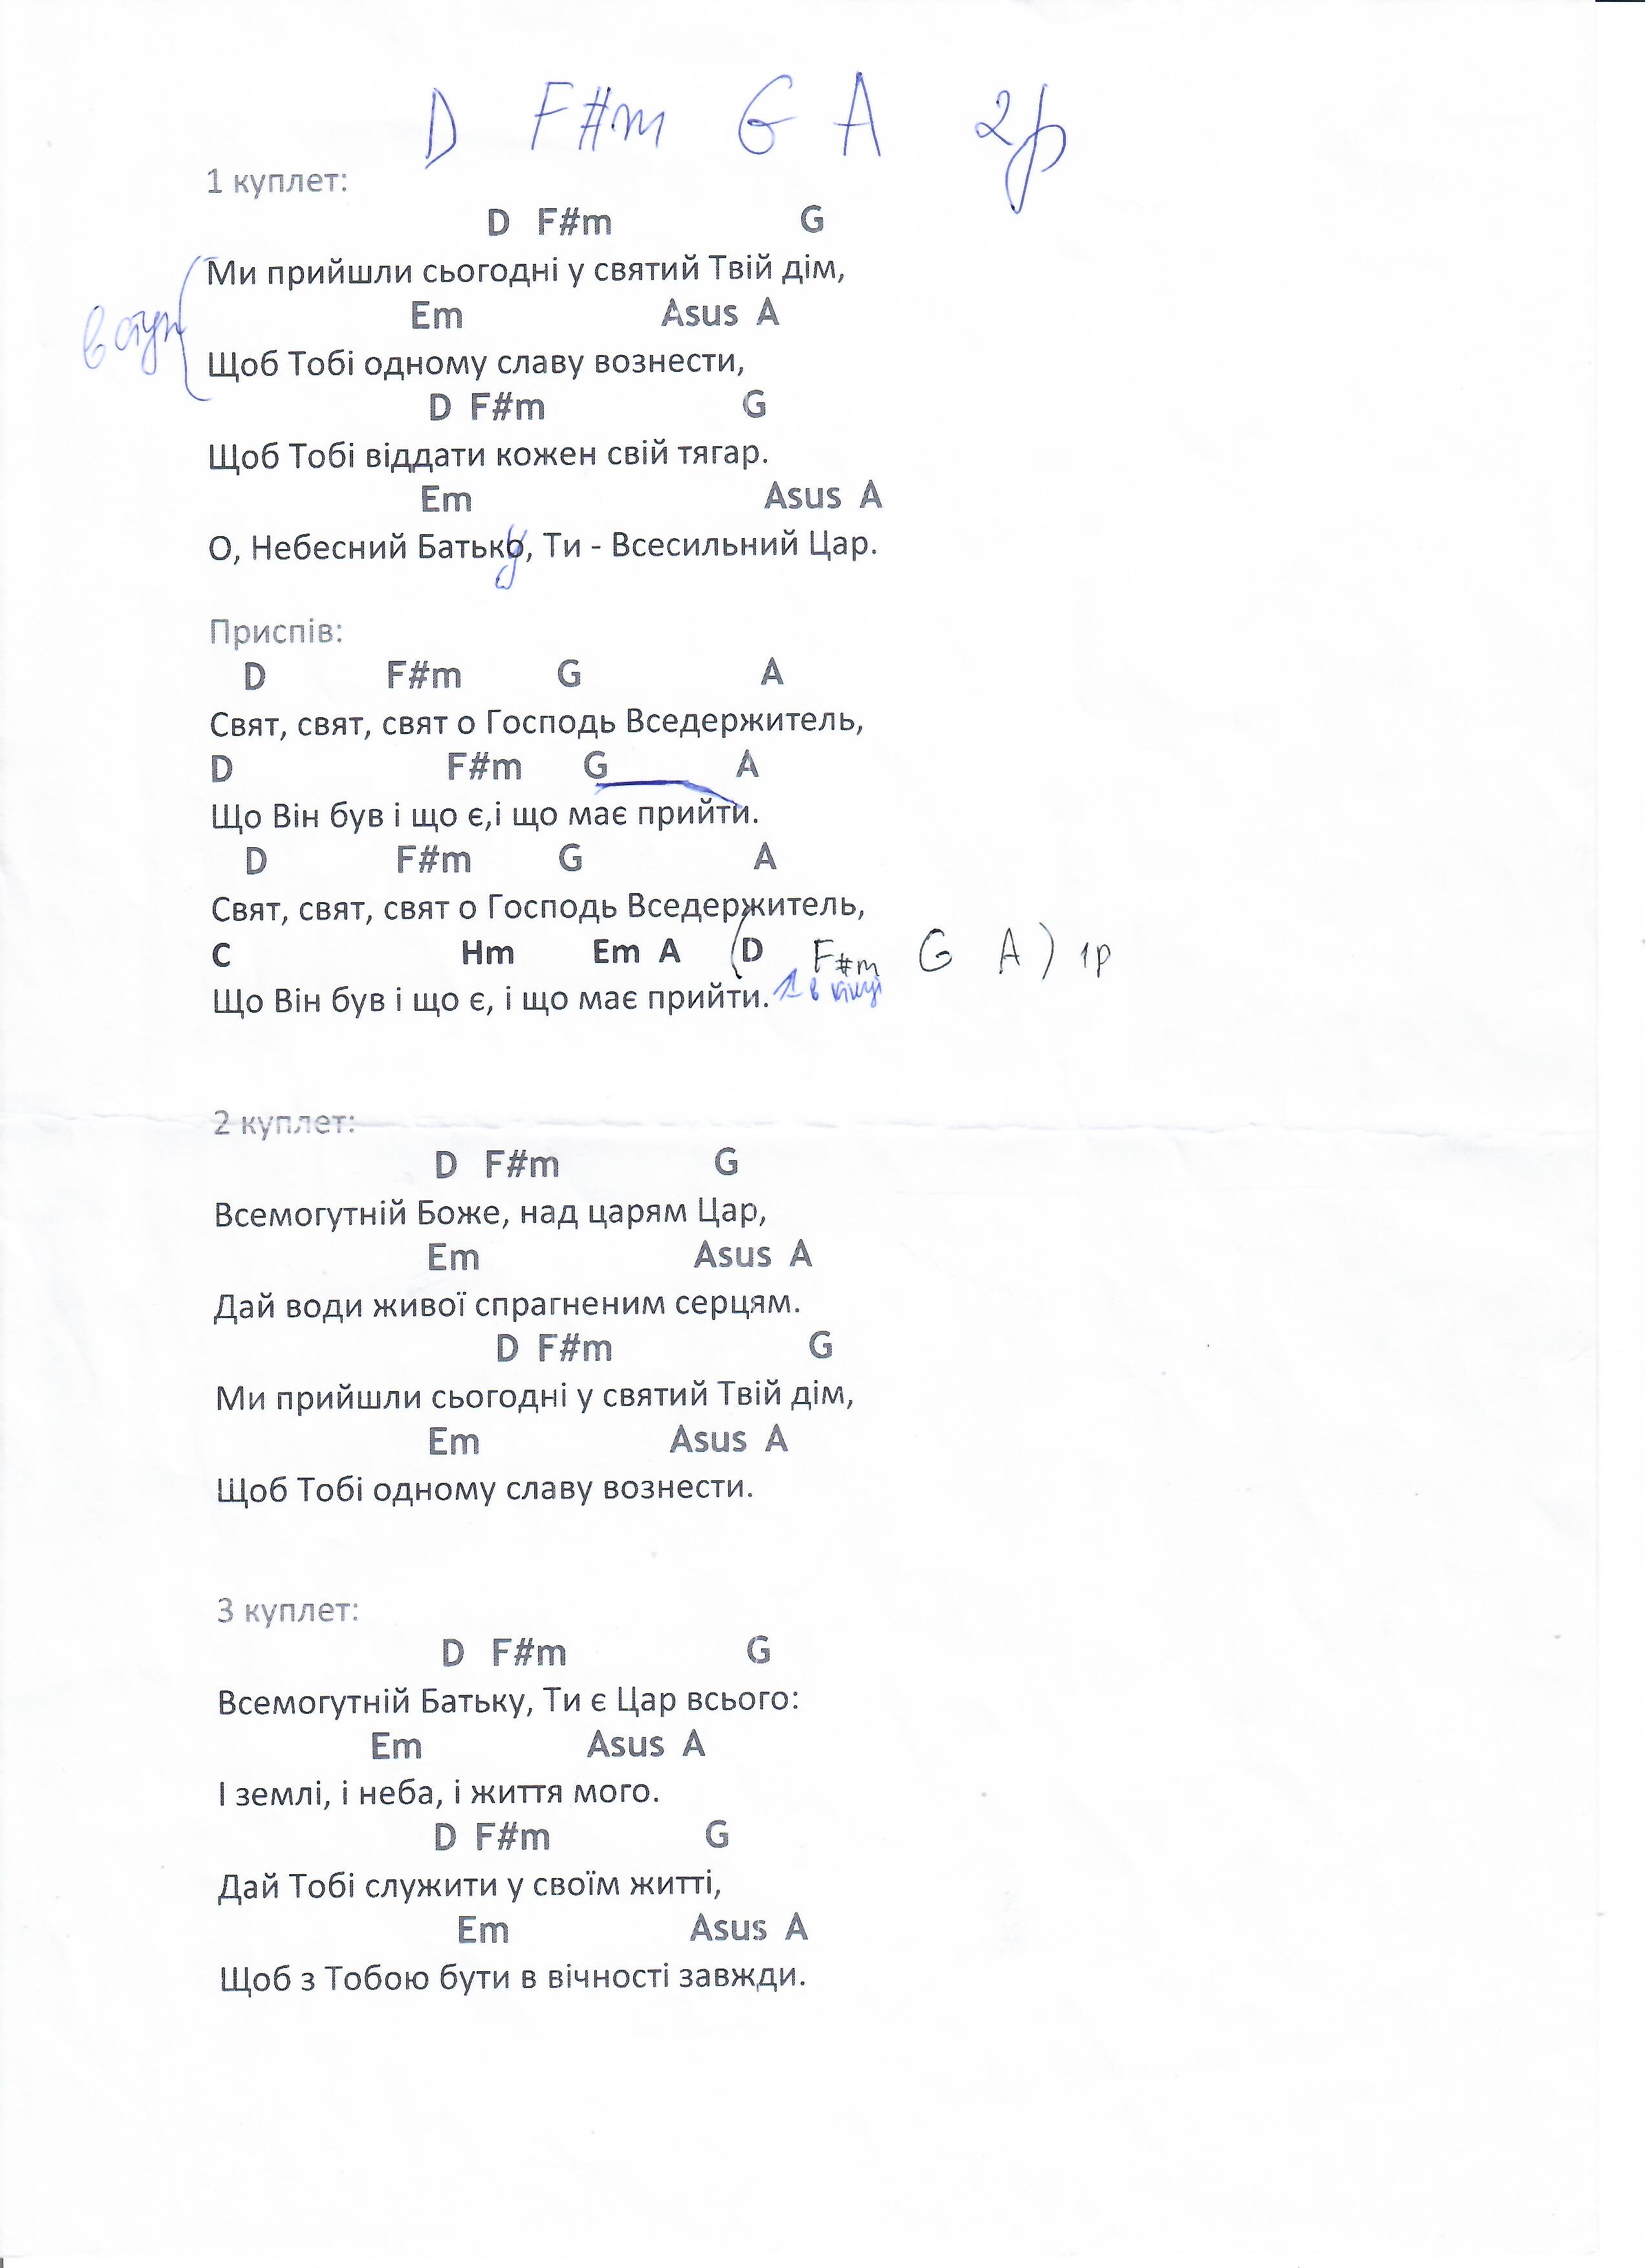 D F#m G A 2р
1 куплет:
D F#m G
Ми прийшли сьогодні у святий Твій дім,
вступ
Em Asus A
Щоб Тобі одному славу вознести,
D F#m G
Щоб Тобі віддати кожен свій тягар.
Em Asus A
О, Небесний Батьку, Ти - Всесильний Цар.
Приспів:
D F#m G A
Свят, свят, свят о Господь Вседержитель,
D F#m G A
Що Він був і що є,і що має прийти.
D F#m G A
Свят, свят, свят о Господь Вседержитель,
C Hm Em A (D F#m G A) 1р
Що Він був і що є, і що має прийти. в кінці
2 куплет:
D F#m G
Всемогутній Боже, над царям Цар,
Em Asus A
Дай води живої спрагненим серцям.
D F#m G
Ми прийшли сьогодні у святий Твій дім,
Em Asus A
Щоб Тобі одному славу вознести.
3 куплет:
D F#m G
Всемогутній Батьку, Ти є Цар всього:
Em Asus A
І землі, і неба, і життя мого.
D F#m G
Дай Тобі служити у своїм житті,
Em Asus A
Щоб з Тобою бути в вічності завжди.